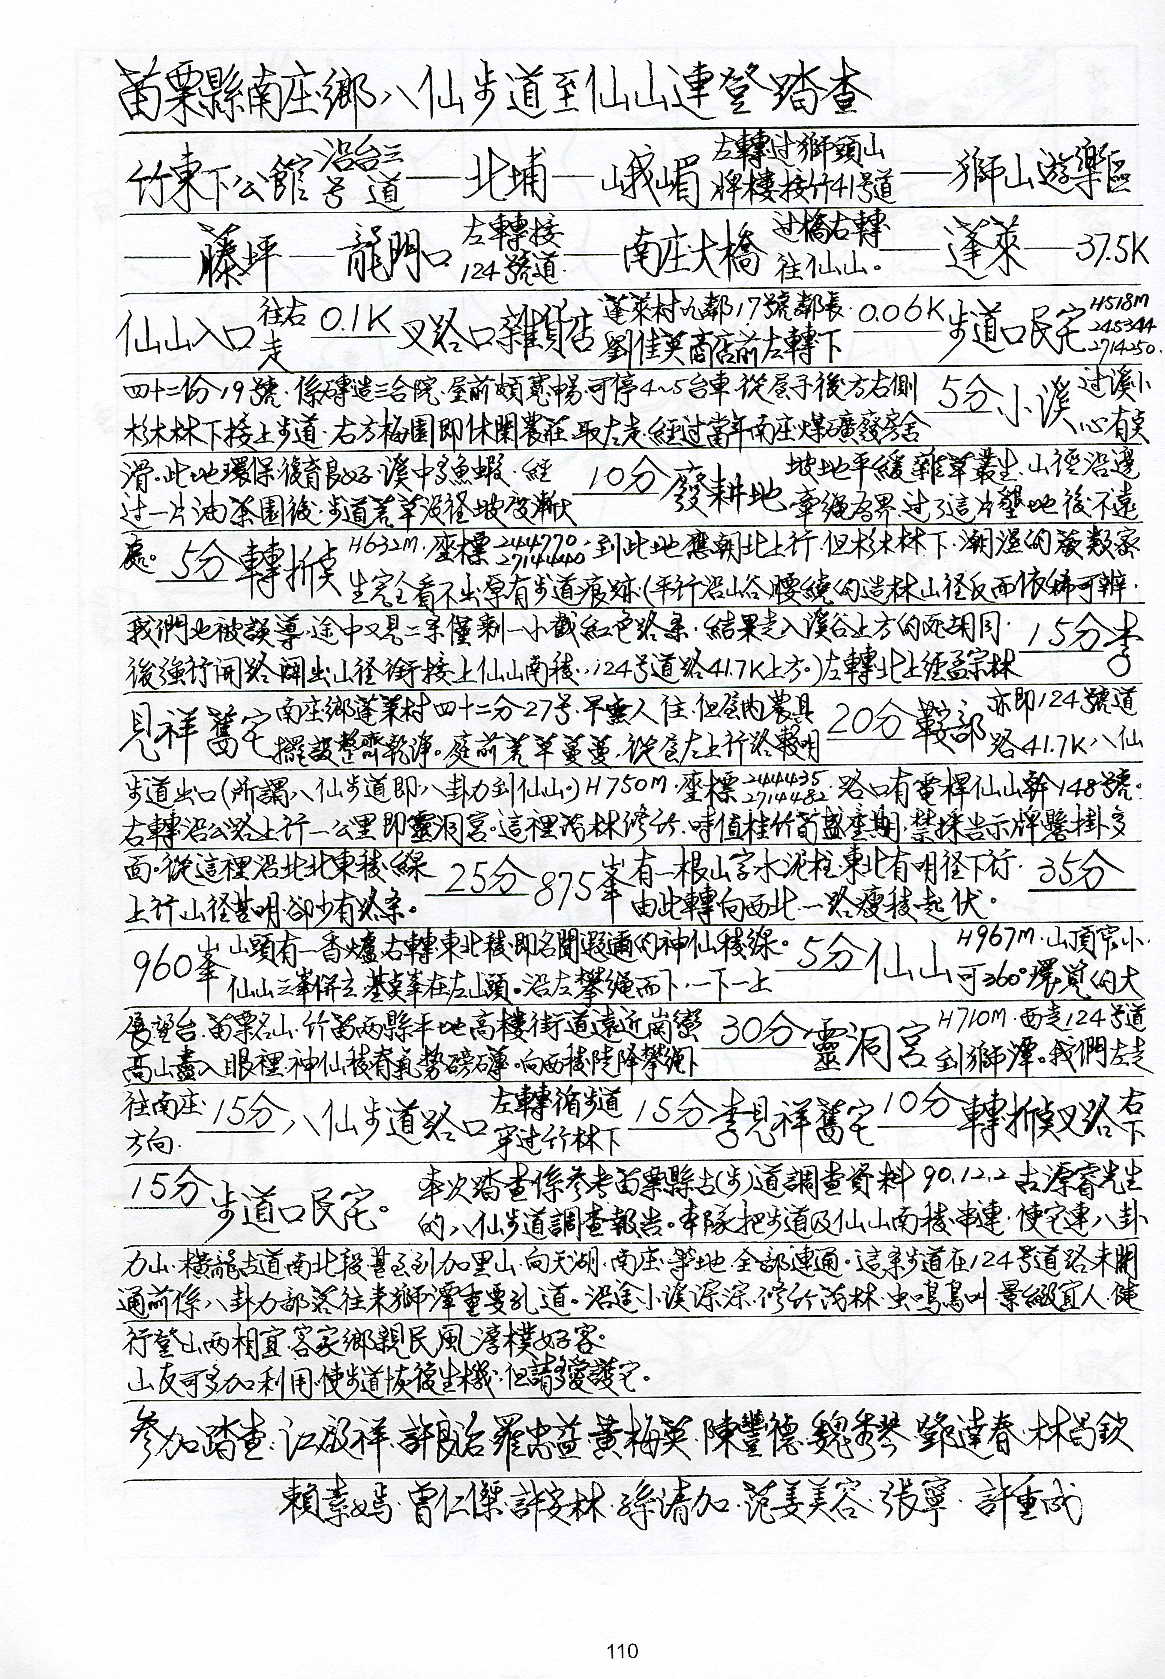 苗栗縣南庄鄉八仙步道至仙山連登踏查
竹東下公館 沿台三号道 — 北埔 — 峨嵋 左轉过獅頭山牌樓接竹41号道 — 獅山遊樂區
— 藤坪 — 龍門口 左轉接124號道 — 南庄大橋 过橋右轉往仙山。 — 蓬萊 — 37.5K
仙山入口 往右走 0.1K 叉路口雜貨店 蓬萊村九鄰17号鄰長·劉佳英商店前左轉下 0.06K 步道口民宅 H518M 245344 2714250.
四十二份19號·係磚造三合院·屋前頗寬暢·可停4~5台車·從屋子後方右側
杉木林下接上步道·右方梅園即休閒農莊·取左走·經过當年南庄煤礦發 舍 5分 小溪 过溪小心有桌
滑。此地環保復育良好·溪中多魚蝦·經
过一片油茶園後·步道荒草沒径坡度漸大 10分 廢耕地 坡地平緩雜草叢生·山徑沿邊牽繩為界过了這片墾地後不遠
處。 5分 轉折桌 H632M·座標244770 2714440·到此地應朝北上行·但杉木林下·潮濕的蕨類密
生完全看不出原有步道痕跡(平行沿山谷腰繞的造林山径反而依稀可辨·
我們也被誤導·途中又見二条僅剩一小截紅色路条·結果走入溪谷上方的死胡同·
後強行開路開出山径銜接上仙山南稜·124号道路41.7K上方。)左轉北上經孟宗林 15分 李
見祥舊宅 南庄鄉蓬萊村四十二分27号·早無人住·但屋內農具擺設整齊乾淨。庭前荒草蔓蔓·從舍左上行路較明 20分 鞍部 亦即124號道路41.7K八仙
步道出口(所謂八仙步道即八卦力到仙山。)H750M·座標244435 2714482·路口有電桿仙山幹148號。
右轉沿公路上行一公里即靈洞宮·這裡茂林修竹·時值桂竹筍盛產期·禁採告示牌懸掛多
面。從這裡沿北北東稜線上行山径甚明卻少有路条。 25分 875峯 有一根山字水泥柱東北有明径下行·由此轉向西北·一路瘦稜起伏。 35分
960峯 山頭有一香爐右轉東北稜即名聞遐邇的神仙稜線。仙山三峯併立基桌峯在左山頭。沿左攀繩而下·一下一上 5分 仙山 H967M·山頂窄小·可360°環覽的大
展望台·苗栗名山·竹苗兩縣平地高樓街道遠近崗巒
高山盡入眼裡·神仙稜脊氣勢磅礡。向西稜陡降攀繩下 30分 靈洞宮 H710M·西走124号道到獅潭。我們左走
往南庄方向· 15分 八仙步道路口 左轉循步道穿过竹林下 15分 李見祥舊宅 10分 轉折桌叉路 右下
15分 步道口民宅。 本次踏查係參考苗栗縣古(步)道調查資料90.12.2古源睿先生
的八仙步道調查報告。本隊把步道及仙山南稜串連·使它連八卦
力山·橫龍古道南北段甚至到加里山·向天湖·南庄·等地·全部連通。這条步道在124号道路未開
通前係八卦力部落往來獅潭重要孔道。沿途小溪淙淙·修竹茂林·虫鳴鳥叫·景緻宜人·健
行登山兩相宜·客家鄉親民風淳樸好客。
山友可多加利用·使步道恢復生機·但請多愛護它。
參加踏查·江成祥·許良治·羅忠益·黃梅英·陳豐德·魏秀琴·劉達春·林昌欽
賴素嫣·曾仁傑·許安林·孫清加·范姜美容·張寧·許重成
110